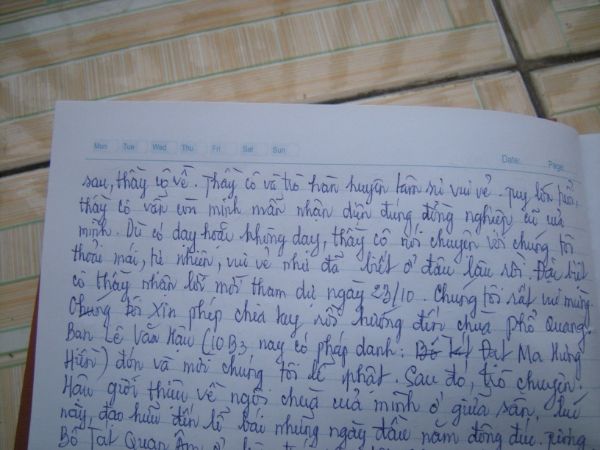 Mon Tue Wed Thu Fri Sat Sun
Date: Page:
sau, thầy cô về. Thầy cô và trò hàn huyên tâm sự vui vẻ. Tuy lớn tuổi,
thầy cô vẫn còn minh mẫn nhận diện đúng đồng nghiệp cũ của
mình. Dù có dạy hoặc không dạy, thầy cô nói chuyện với chúng tôi
thoải mái, tự nhiên, vui vẻ như đã biết ở đâu lâu rồi. Đặc biệt
có thầy nhận lời mời tham dự ngày 23/10. Chúng tôi rất vui mừng.
Chúng tôi xin phép chia tay rồi hướng đến chùa Phổ Quang.
Bạn Lê Văn Hậu (10B3 nay có pháp danh: Đạt Ma Hưng
Hiển) đón và mời chúng tôi lễ phật. Sau đó, trò chuyện.
Hậu giới thiệu về ngôi chùa của mình ở giữa sân, lúc
này, đạo hữu đến lễ bái những ngày đầu năm đông đúc.
Bồ Tát Quan Âm ở